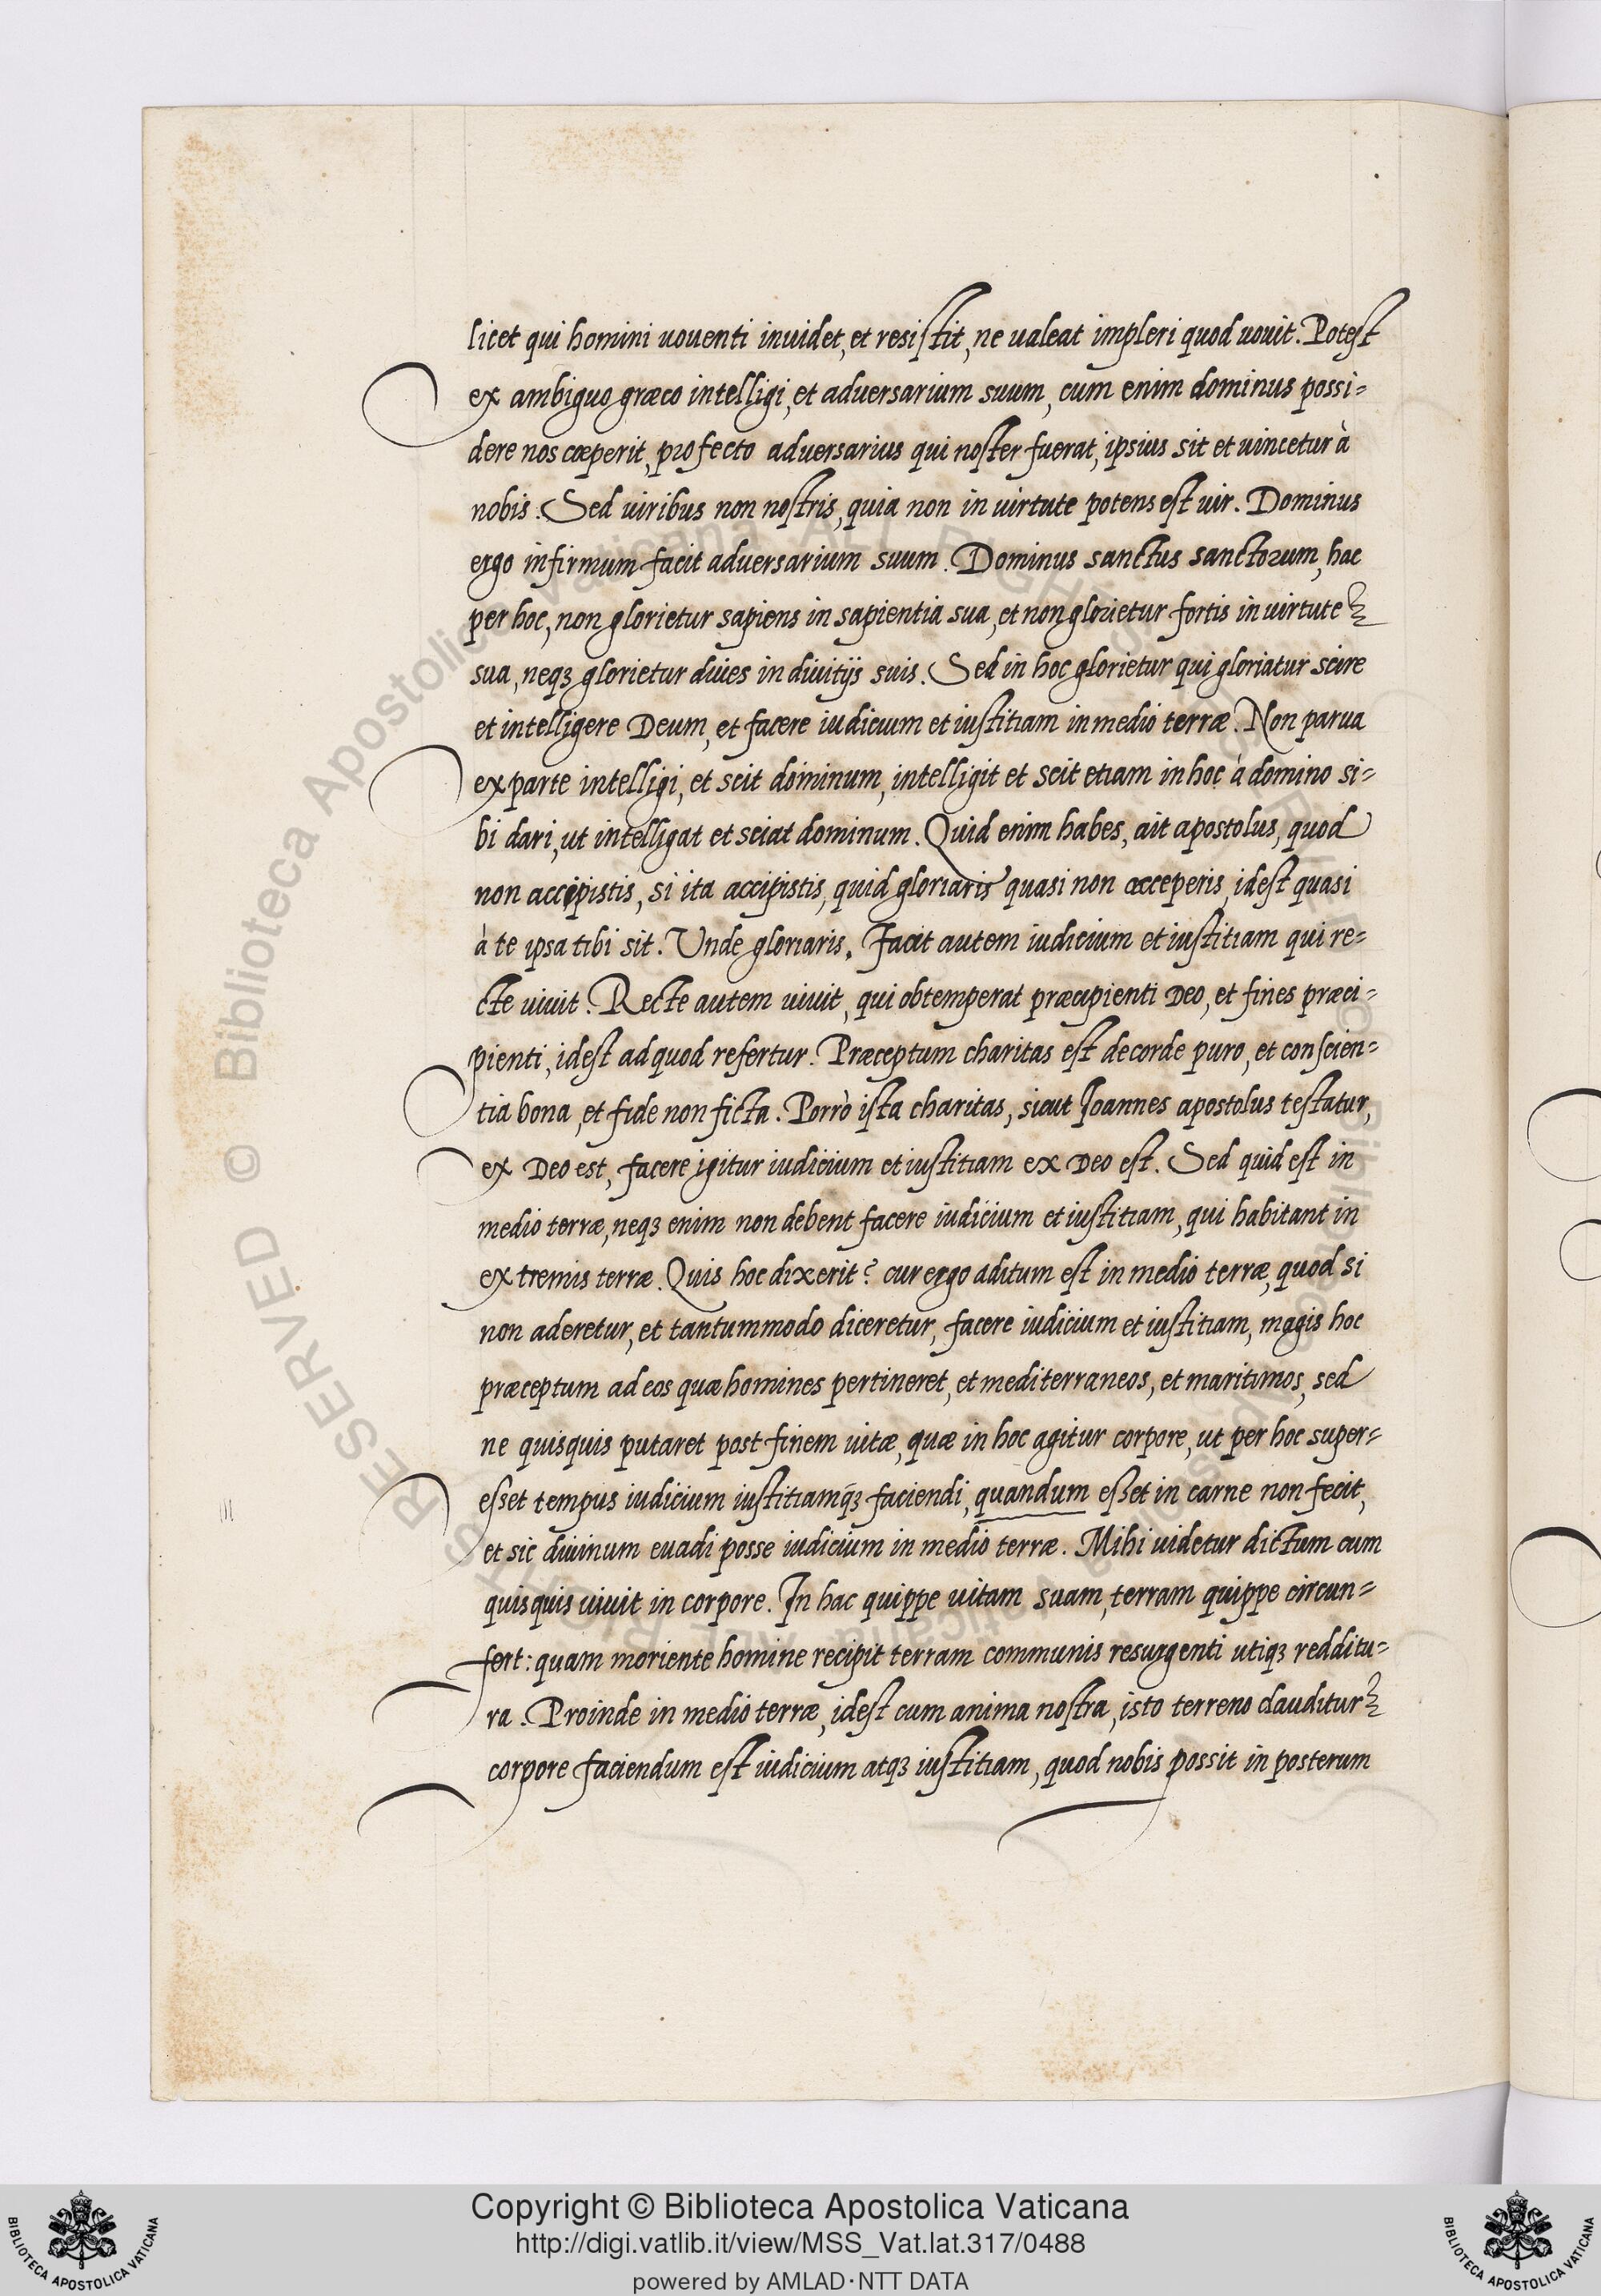 licet qui homini uouenti inuidet, et resistit, ne ualeat impleri quod uouit. Potest
ex ambiguo græco intelligi, et aduersarium suum, cum enim dominus possi=
dere nos cœperit, profecto aduersarius qui noster fuerat, ipsius sit et uincetur à
nobis. Sed uiribus non nostris, quia non in uirtute potens est uir. Dominus
ergo infirmum facit aduersarium suum. Dominus sanctus sanctorum, hac
per hoc, non glorietur sapiens in sapientia sua, et non glorietur fortis in uirtute
sua, neqȝ glorietur diues in diuitijs suis. Sed in hoc glorietur qui gloriatur scire
et intelligere Deum, et facere iudicium et iustitiam in medio terræ. Non parua
ex parte intelligi, et scit dominum, intelligit et scit etiam in hoc à domino si=
bi dari, ut intelligat et sciat dominum. Quid enim habes, ait apostolus, quod
non accipistis, si ita accipistis, quid gloriaris quasi non acceperis, idest quasi
à te ipsa tibi sit. Unde gloriaris. Facit autem iudicium et iustitiam qui re=
cte uiuit. Recte autem uiuit, qui obtemperat præcipienti Deo, et fines præci=
pienti, idest ad quod refertur. Præceptum charitas est de corde puro, et conscien=
tia bona, et fide non ficta. Porrò ista charitas, sicut Ioannes apostolus testatur,
ex Deo est, facere igitur iudicium et iustitiam ex Deo est. Sed quid est in
medio terræ, neqȝ enim non debent facere iudicium et iustitiam, qui habitant in
extremis terræ. Quis hoc dixerit? cur ergo aditum est in medio terræ, quod si
non aderetur, et tantummodo diceretur, facere iudicium et iustitiam, magis hoc
præceptum ad eos quæ homines pertineret, et mediterraneos, et maritimos, sed
ne quisquis putaret post finem uitæ, quæ in hoc agitur corpore, ut per hoc super=
esset tempus iudicium iustitiamqȝ faciendi, quandum esset in carne non fecit,
et sic diuinum euadi posse iudicium in medio terræ. Mihi uidetur dictum cum
quisquis uiuit in corpore. In hac quippe uitam suam, terram quippe circun=
fert: quam moriente homine recipit terram communis resurgenti utiqȝ redditu=
ra. Proinde in medio terræ, idest cum anima nostra, isto terreno clauditur
corpore faciendum est iudicium atqȝ iustitiam, quod nobis possit in posterum
© Biblioteca Apostolica Vaticana
Copyright © Biblioteca Apostolica Vaticana
http://digi.vatlib.it/view/MSS_Vat.lat.317/0488
powered by AMLAD·NTT DATA
BIBLIOTECA APOSTOLICA VATICANA
BIBLIOTECA APOSTOLICA VATICANA